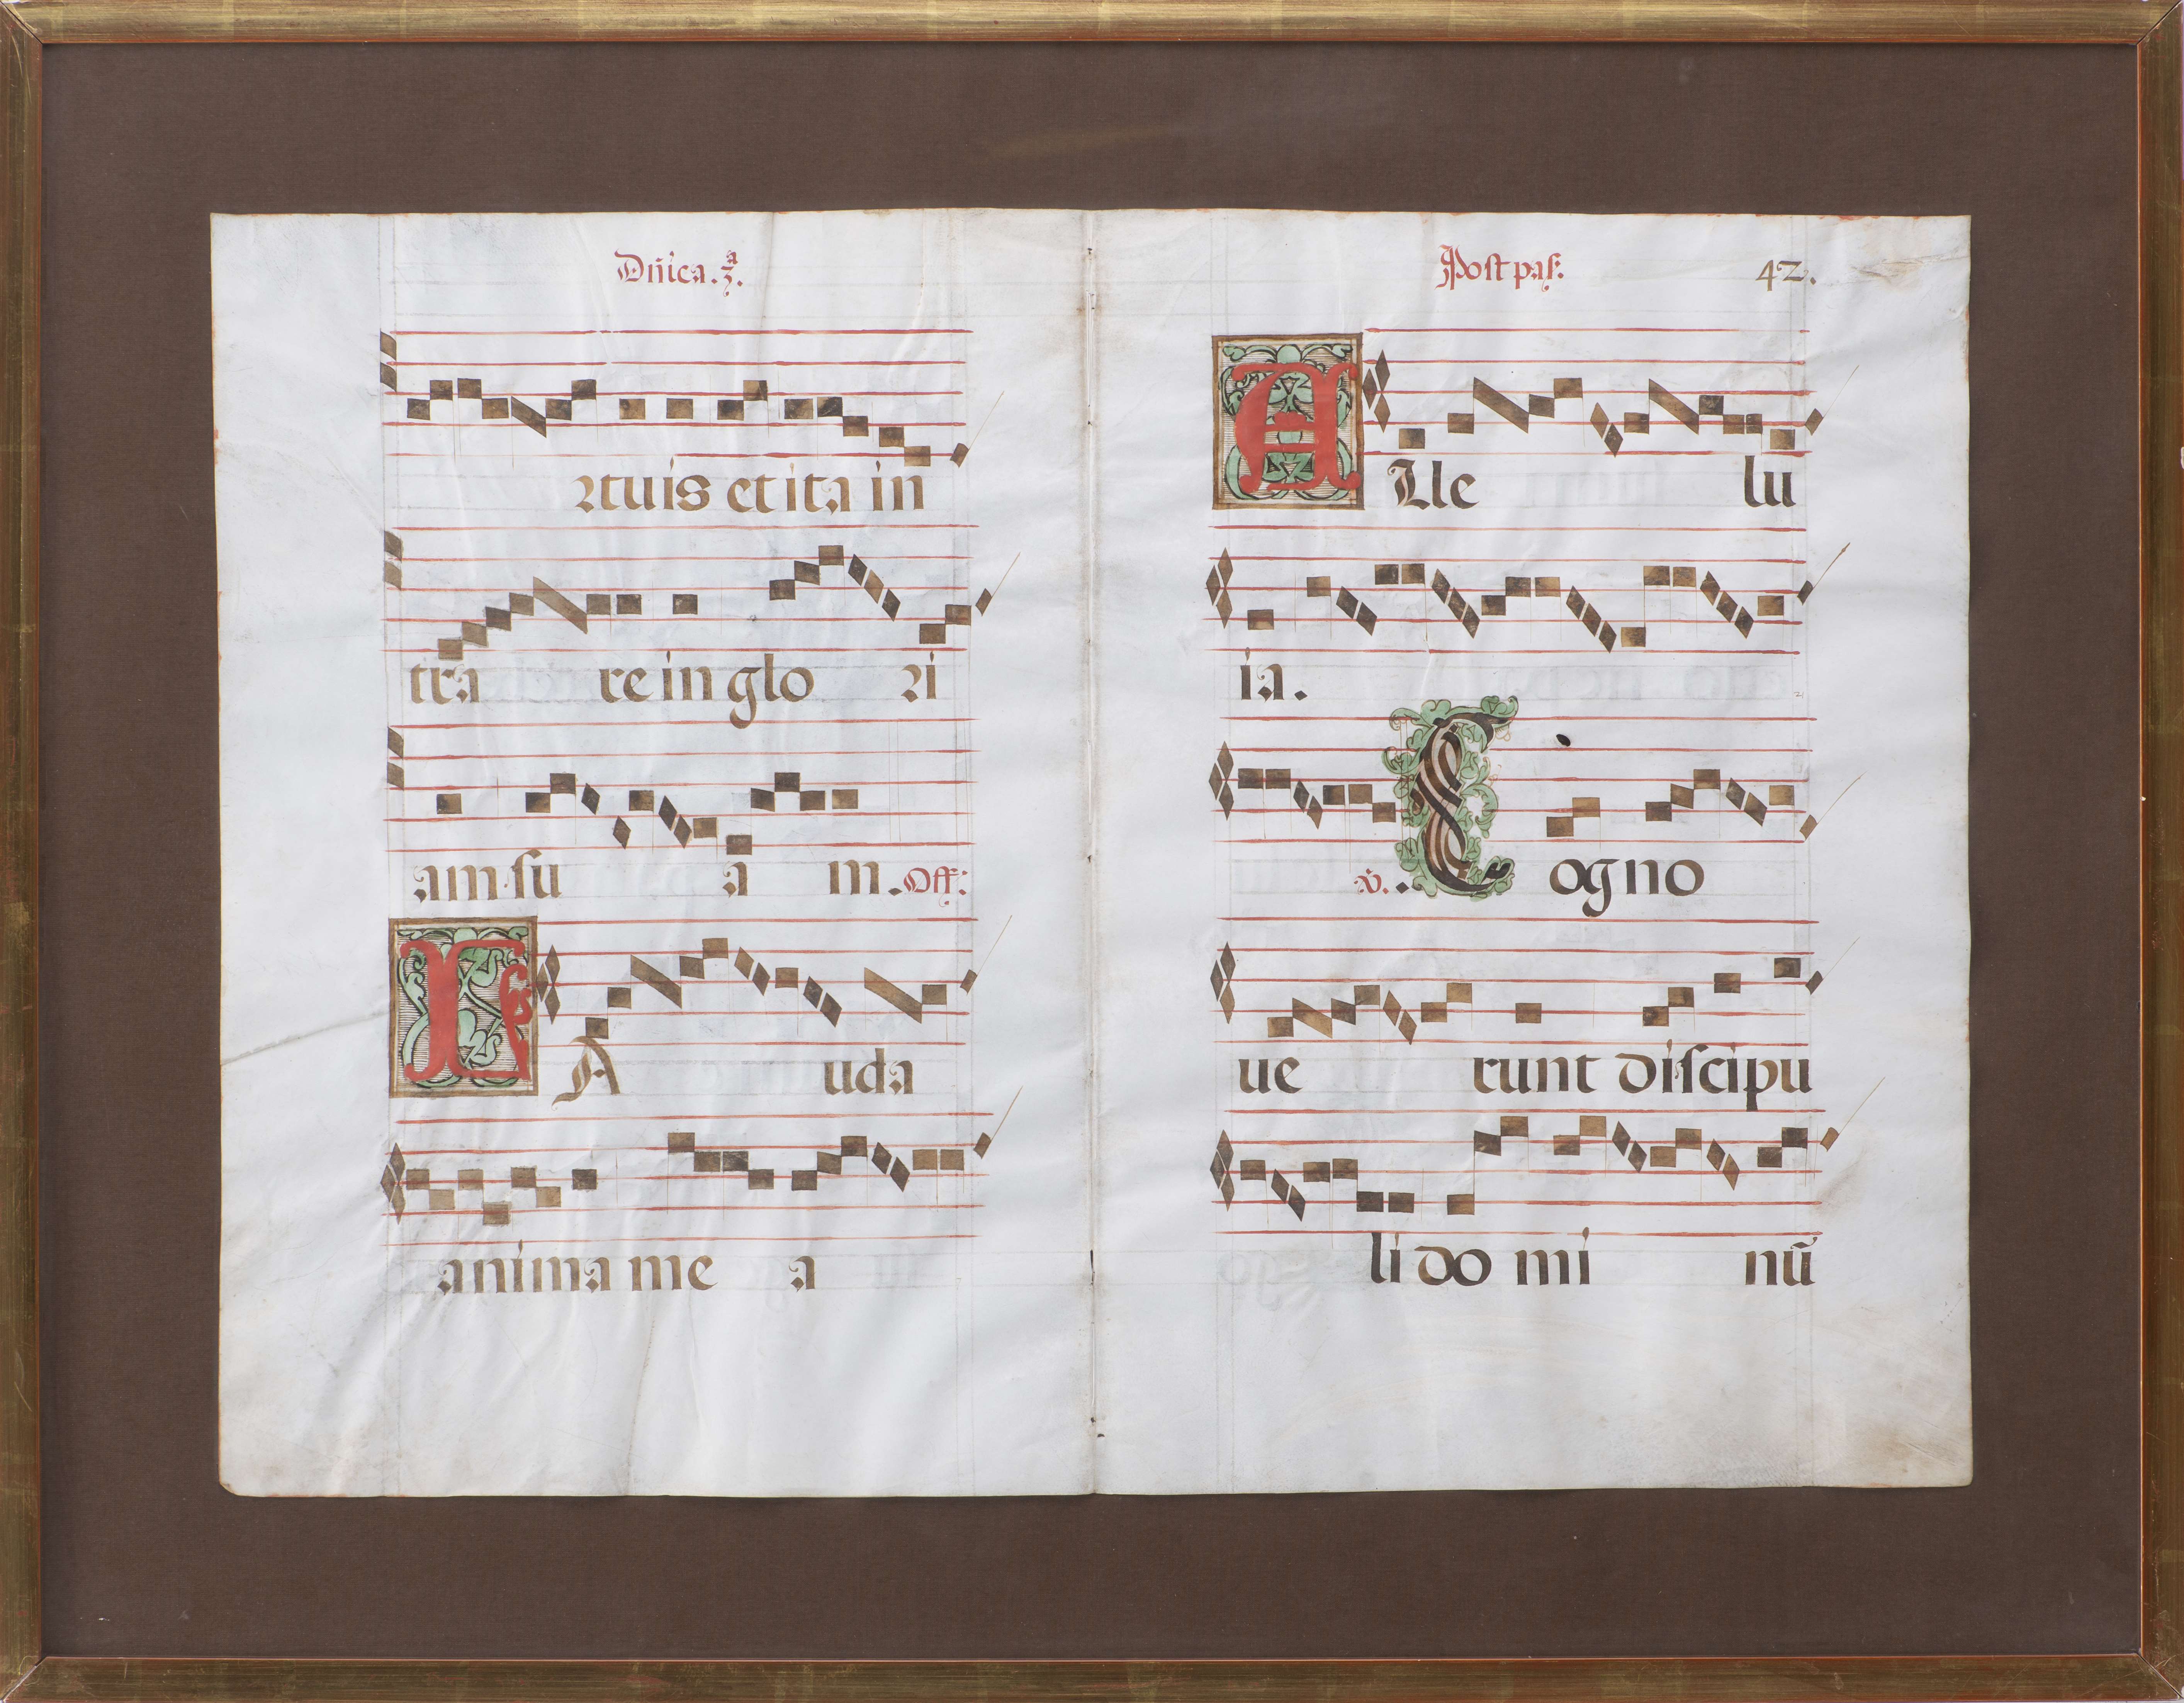 Dñica. 3ª.
rtuis et ita in
tra re in glo ri
am su a m. Off:
LA uda
anima me a
Post pas: 42.
Alle lu
ia.
℣. Cogno
ue runt discipu
li do mi nū